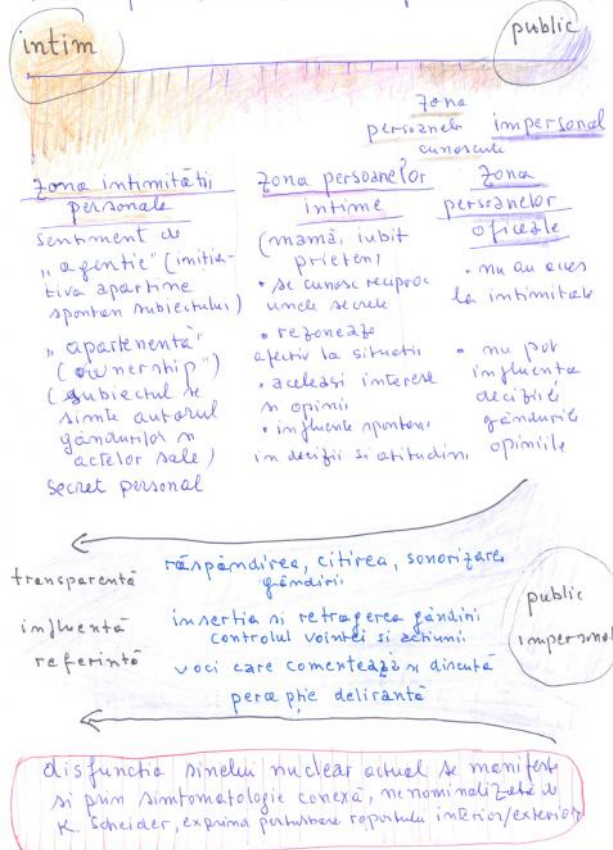 intim
public
zona
persoanelor
cunoscute
impersonal
zona intimității
personale
sentiment de
„agenție" (iniția-
tiva aparține
spontan subiectului)
„apartenență"
(ownership")
(subiectul se
simte autorul
gândurilor și
actelor sale)
secret personal
zona persoanelor
intime
(mamă, iubit
prieten)
• se cunosc reciproc
unele secrete
• rezonează
afectiv la situații
• aceleași interese
și opinii
• influențe spontane
in decizii si atitudini
zona
persoanelor
oficiale
• nu au acces
la intimitate
• nu pot
influența
deciziile
gândurile
opiniile
transparență
influență
referință
răspândirea, citirea, sonorizarea
gândirii
inserția si retragerea gândirii
controlul voinței si acțiunii
voci care comentează și discută
percepție delirantă
public
impersonal
disfuncția sinelui nuclear actual se manifestă
si prin simtomatologie conexă, nenominalizată de
K. Scheider, exprimă perturbare raportului interior/exterior